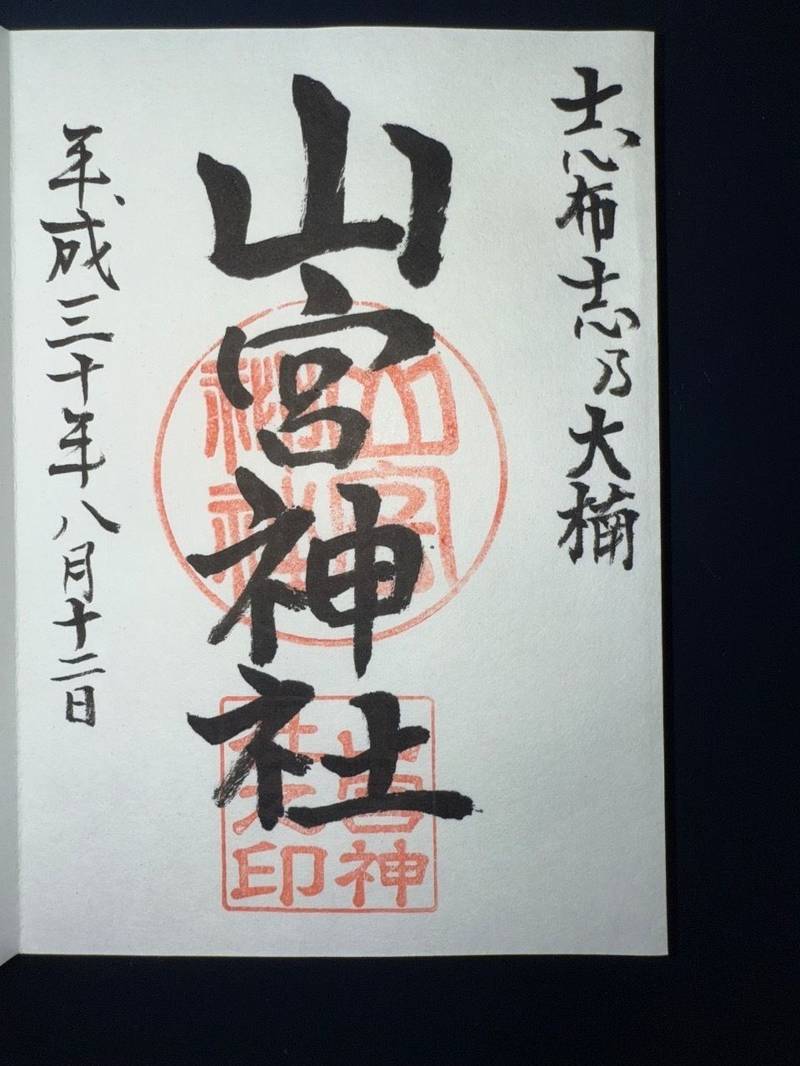 志布志乃大楠
山宮神社
平成三十年八月十二日
山宮神社
山宮神社
印